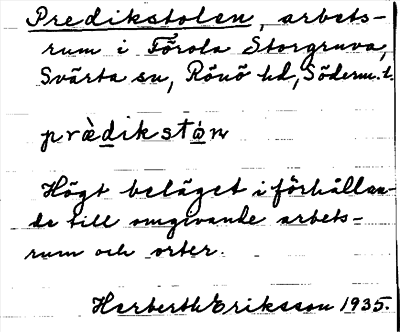 Predikstolen, arbets-
rum i Förola Storgruva,
Svärta sn, Rönö hd, Söderm. l.
prὰdikstȧ́n
Högt beläget i förhållan-
de till omgivande arbets-
rum och orter.
Herberth Eriksson 1935.